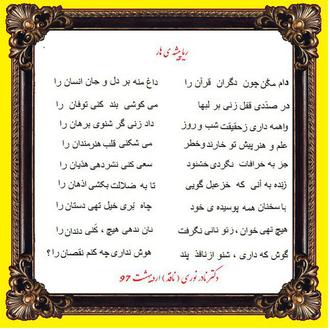 ریا پیشه ی هار
دام مکن چون دگران قرآن را
داغ منه بر دل و جان انسان را
در صددی قفل زنی بر لبها
می کوشی بند کنی توفان را
واهمه داری زحقیقت شب وروز
داد زنی گر شنوی برهان را
علم و هنرپیش تو خارند وخطر
می شکنی قلب هنرمندان را
جز به خرافات نگردی خشنود
سعی کنی نشردهی هذیان را
زنده به آنی که خزعبل گویی
تا به ضلالت بکشی اذهان را
باسخنان همه پوسیده ی خود
چاه بَری خیل تهی دستان را
هیچ تهی خوان ، زتو نانی نگرفت
نان ندهی هیچ ، کَنی دندان را
گوش که داری ، شنو ازناقد پند
هوش نداری چه کنم نقصان را؟
دکتر نادر نوری ( ناقد ) اردیبهشت 97